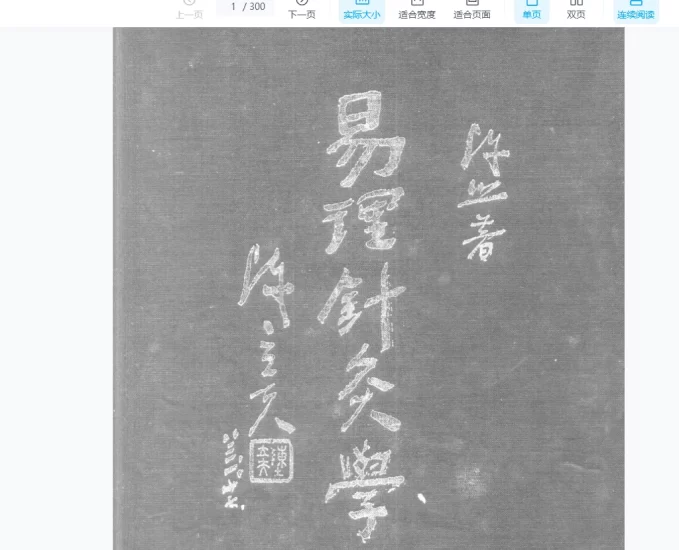 上一页
1 / 300
下一页
实际大小
适合宽度
适合页面
单页
双页
连续阅读
陈照著
易理針灸學
陈立夫